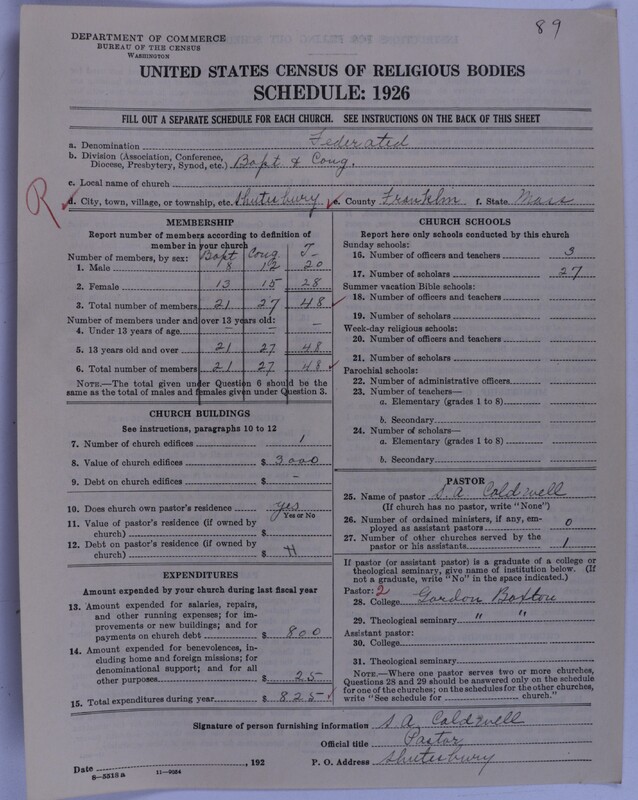 89
DEPARTMENT OF COMMERCE
BUREAU OF THE CENSUS
WASHINGTON
UNITED STATES CENSUS OF RELIGIOUS BODIES
SCHEDULE: 1926
FILL OUT A SEPARATE SCHEDULE FOR EACH CHURCH. SEE INSTRUCTIONS ON THE BACK OF THIS SHEET
a. Denomination Federated
b. Division (Association, Conference,
Diocese, Presbytery, Synod, etc.) Bapt & Cong.
c. Local name of church
R
d. City, town, village, or township, etc. Shutesbury e. County Franklin f. State Mass
MEMBERSHIP
Report number of members according to definition of
member in your church
Number of members, by sex: Bapt Cong T
1. Male 8 12 20
2. Female 13 15 28
3. Total number of members 21 27 48
Number of members under and over 13 years old:
4. Under 13 years of age - - -
5. 13 years old and over 21 27 48
6. Total number of members 21 27 48
NOTE.—The total given under Question 6 should be the
same as the total of males and females given under Question 3.
CHURCH BUILDINGS
See instructions, paragraphs 10 to 12
7. Number of church edifices 1
8. Value of church edifices $ 3000
9. Debt on church edifices $ -
10. Does church own pastor's residence yes
Yes or No
11. Value of pastor's residence (if owned by
church) $
12. Debt on pastor's residence (if owned by
church) $
EXPENDITURES
Amount expended by your church during last fiscal year
13. Amount expended for salaries, repairs,
and other running expenses; for im-
provements or new buildings; and for
payments on church debt $ 800
14. Amount expended for benevolences, in-
cluding home and foreign missions; for
denominational support; and for all
other purposes $ 25
15. Total expenditures during year $ 825
CHURCH SCHOOLS
Report here only schools conducted by this church
Sunday schools:
16. Number of officers and teachers 3
17. Number of scholars 27
Summer vacation Bible schools:
18. Number of officers and teachers
19. Number of scholars
Week-day religious schools:
20. Number of officers and teachers
21. Number of scholars
Parochial schools:
22. Number of administrative officers
23. Number of teachers—
a. Elementary (grades 1 to 8)
b. Secondary
24. Number of scholars—
a. Elementary (grades 1 to 8)
b. Secondary
PASTOR
25. Name of pastor S. A. Coldwell
(If church has no pastor, write "None")
26. Number of ordained ministers, if any, em-
ployed as assistant pastors 0
27. Number of other churches served by the
pastor or his assistants 1
If pastor (or assistant pastor) is a graduate of a college or
theological seminary, give name of institution below. (If
not a graduate, write "No" in the space indicated.)
Pastor: 2
28. College Gordon Boston
29. Theological seminary " "
Assistant pastor:
30. College
31. Theological seminary
NOTE.—Where one pastor serves two or more churches,
Questions 28 and 29 should be answered only on the schedule
for one of the churches; on the schedules for the other churches,
write "See schedule for church."
Signature of person furnishing information S. A. Coldwell
Official title Pastor
Date , 192 P. O. Address Shutesbury
8—5513a 11—9024